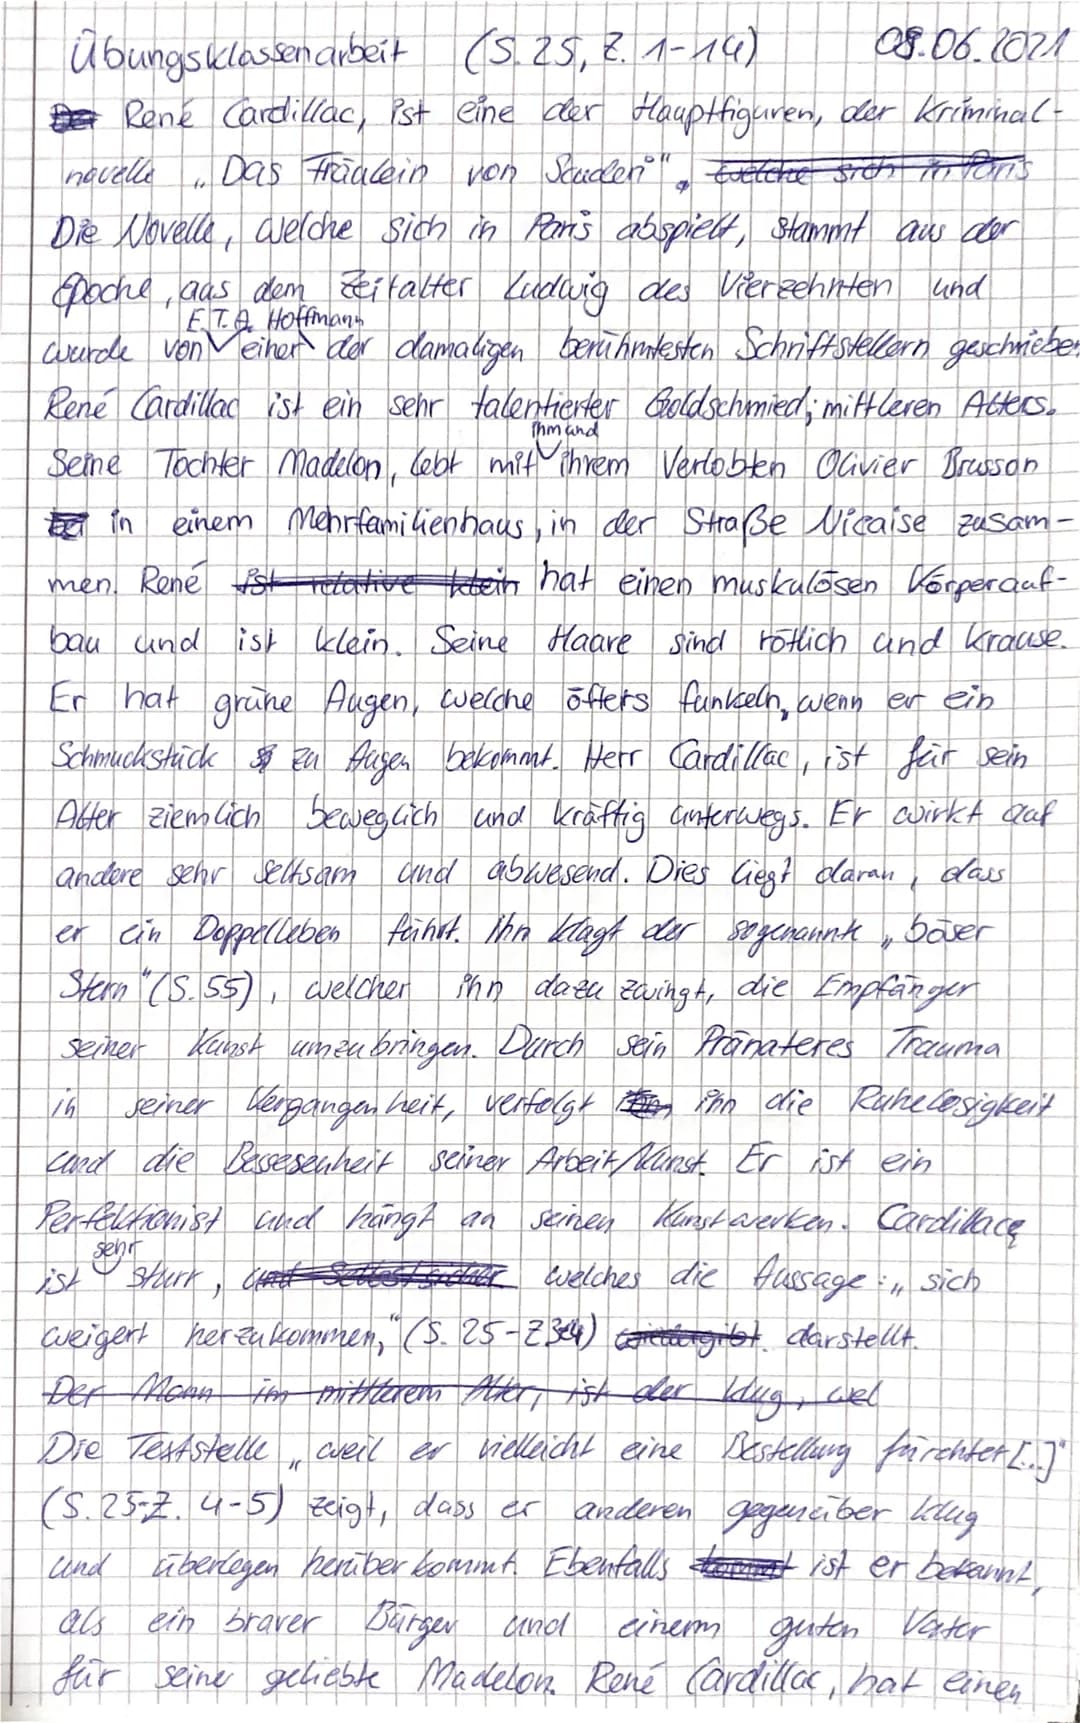 Übungsklassenarbeit (S. 25, Z. 1-14) 08.06.2021
René Cardillac, ist eine der Hauptfiguren, der Kriminal-
novelle „Das Fräulein von Scuderi“. welche sich in Paris
Die Novelle, welche sich in Paris abspielt, stammt aus der
Epoche, aus dem Zeitalter Ludwig des Vierzehnten und
E.T.A. Hoffmann
wurde von einer der damaligen berühmtesten Schriftstellern geschrieben
René Cardillac ist ein sehr talentierter Goldschmied, mittleren Alters.
ihm und
Seine Tochter Madelon, lebt mit ihrem Verlobten Olivier Brusson
in einem Mehrfamilienhaus, in der Straße Nicaise zusam-
men. René ist relative klein hat einen muskulösen Körperauf-
bau und ist klein. Seine Haare sind rötlich und krause.
Er hat grüne Augen, welche öfters funkeln, wenn er ein
Schmuckstück zu Augen bekommt. Herr Cardillac, ist für sein
Alter ziemlich beweglich und kräftig unterwegs. Er wirkt auf
andere sehr seltsam und abwesend. Dies liegt daran, dass
er ein Doppelleben führt. Ihn klagt der sogenannte „böser
Stern“ (S. 55), welcher ihn dazu zwingt, die Empfänger
seiner Kunst umzubringen. Durch sein Pränateres Trauma
in seiner Vergangenheit, verfolgt ihn die Ruhelosigkeit
und die Bessesenheit seiner Arbeit/Kunst. Er ist ein
Perfektionist und hängt an seinen Kunstwerken. Cardillac
sehr
ist sturr, und Selbstsicher welches die Aussage: „sich
weigert herzukommen,“ (S. 25-Z 3-4) wiedergibt. darstellt.
Der Mann im mittlerem Alter, ist der klug, wel
Die Textstelle „weil er vielleicht eine Bestellung fürchtet [...]“
(S. 25-Z. 4-5) zeigt, dass er anderen gegenüber klug
und überlegen herüber kommt. Ebenfalls kommt ist er bekannt,
als ein braver Bürger und einem guten Vater
für seine geliebte Madelon. René Cardillac, hat einen